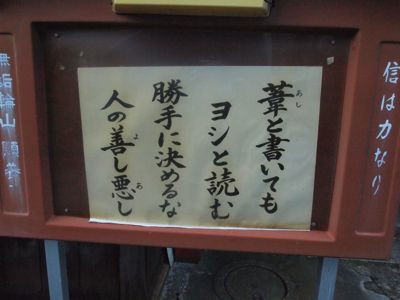 信は力なり
葦と書いても
あし
ヨシと読む
勝手に決めるな
人の善し悪し
よ
あ